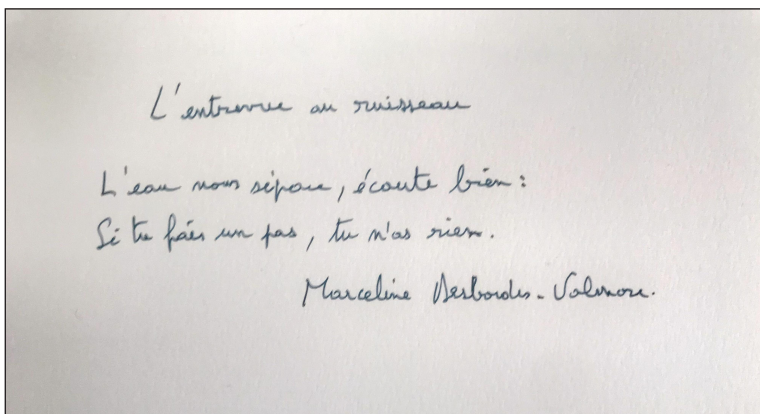 L'entrevue au ruisseau
L'eau nous sépare, écoute bien :
Si tu fais un pas, tu n'as rien.
Marceline Desbordes-Valmore.